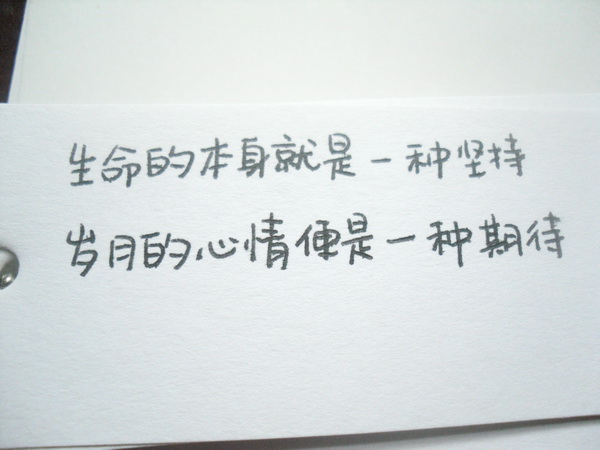 生命的本身就是一种坚持
岁月的心情便是一种期待